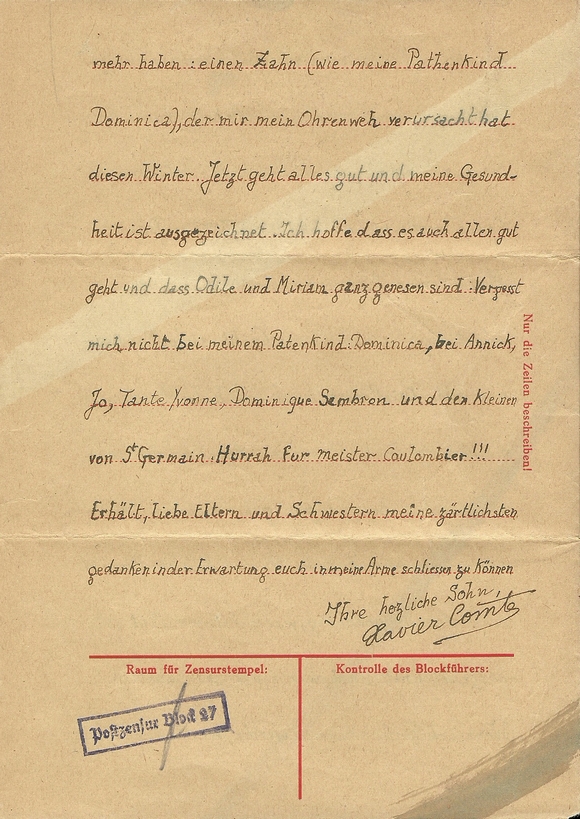 mehr haben : einen Zahn (wie meine Pathenkind
Dominica), der mir mein Ohrenweh verursacht hat
diesen Winter. Jetzt geht alles gut und meine Gesund-
heit ist ausgezeichnet. Ich hoffe dass es auch allen gut
geht und dass Odile und Miriam ganz genesen sind. Vergesst
mich nicht bei meinem Patenkind Dominica, bei Annick,
Jo, Tante Yvonne, Dominique Sambron und den Kleinen
von St Germain. Hurrah fur meister Coulombier!!!
Erhält, liebe Eltern und Schwestern meine zärtlichsten
gedanken in der Erwartung euch in meine Arme schliessen zu können
Ihre hezliche Sohn,
Xavier Comte
Nur die Zeilen beschreiben!
Raum für Zensurstempel:
Kontrolle des Blockführers:
Postzensur Block 27